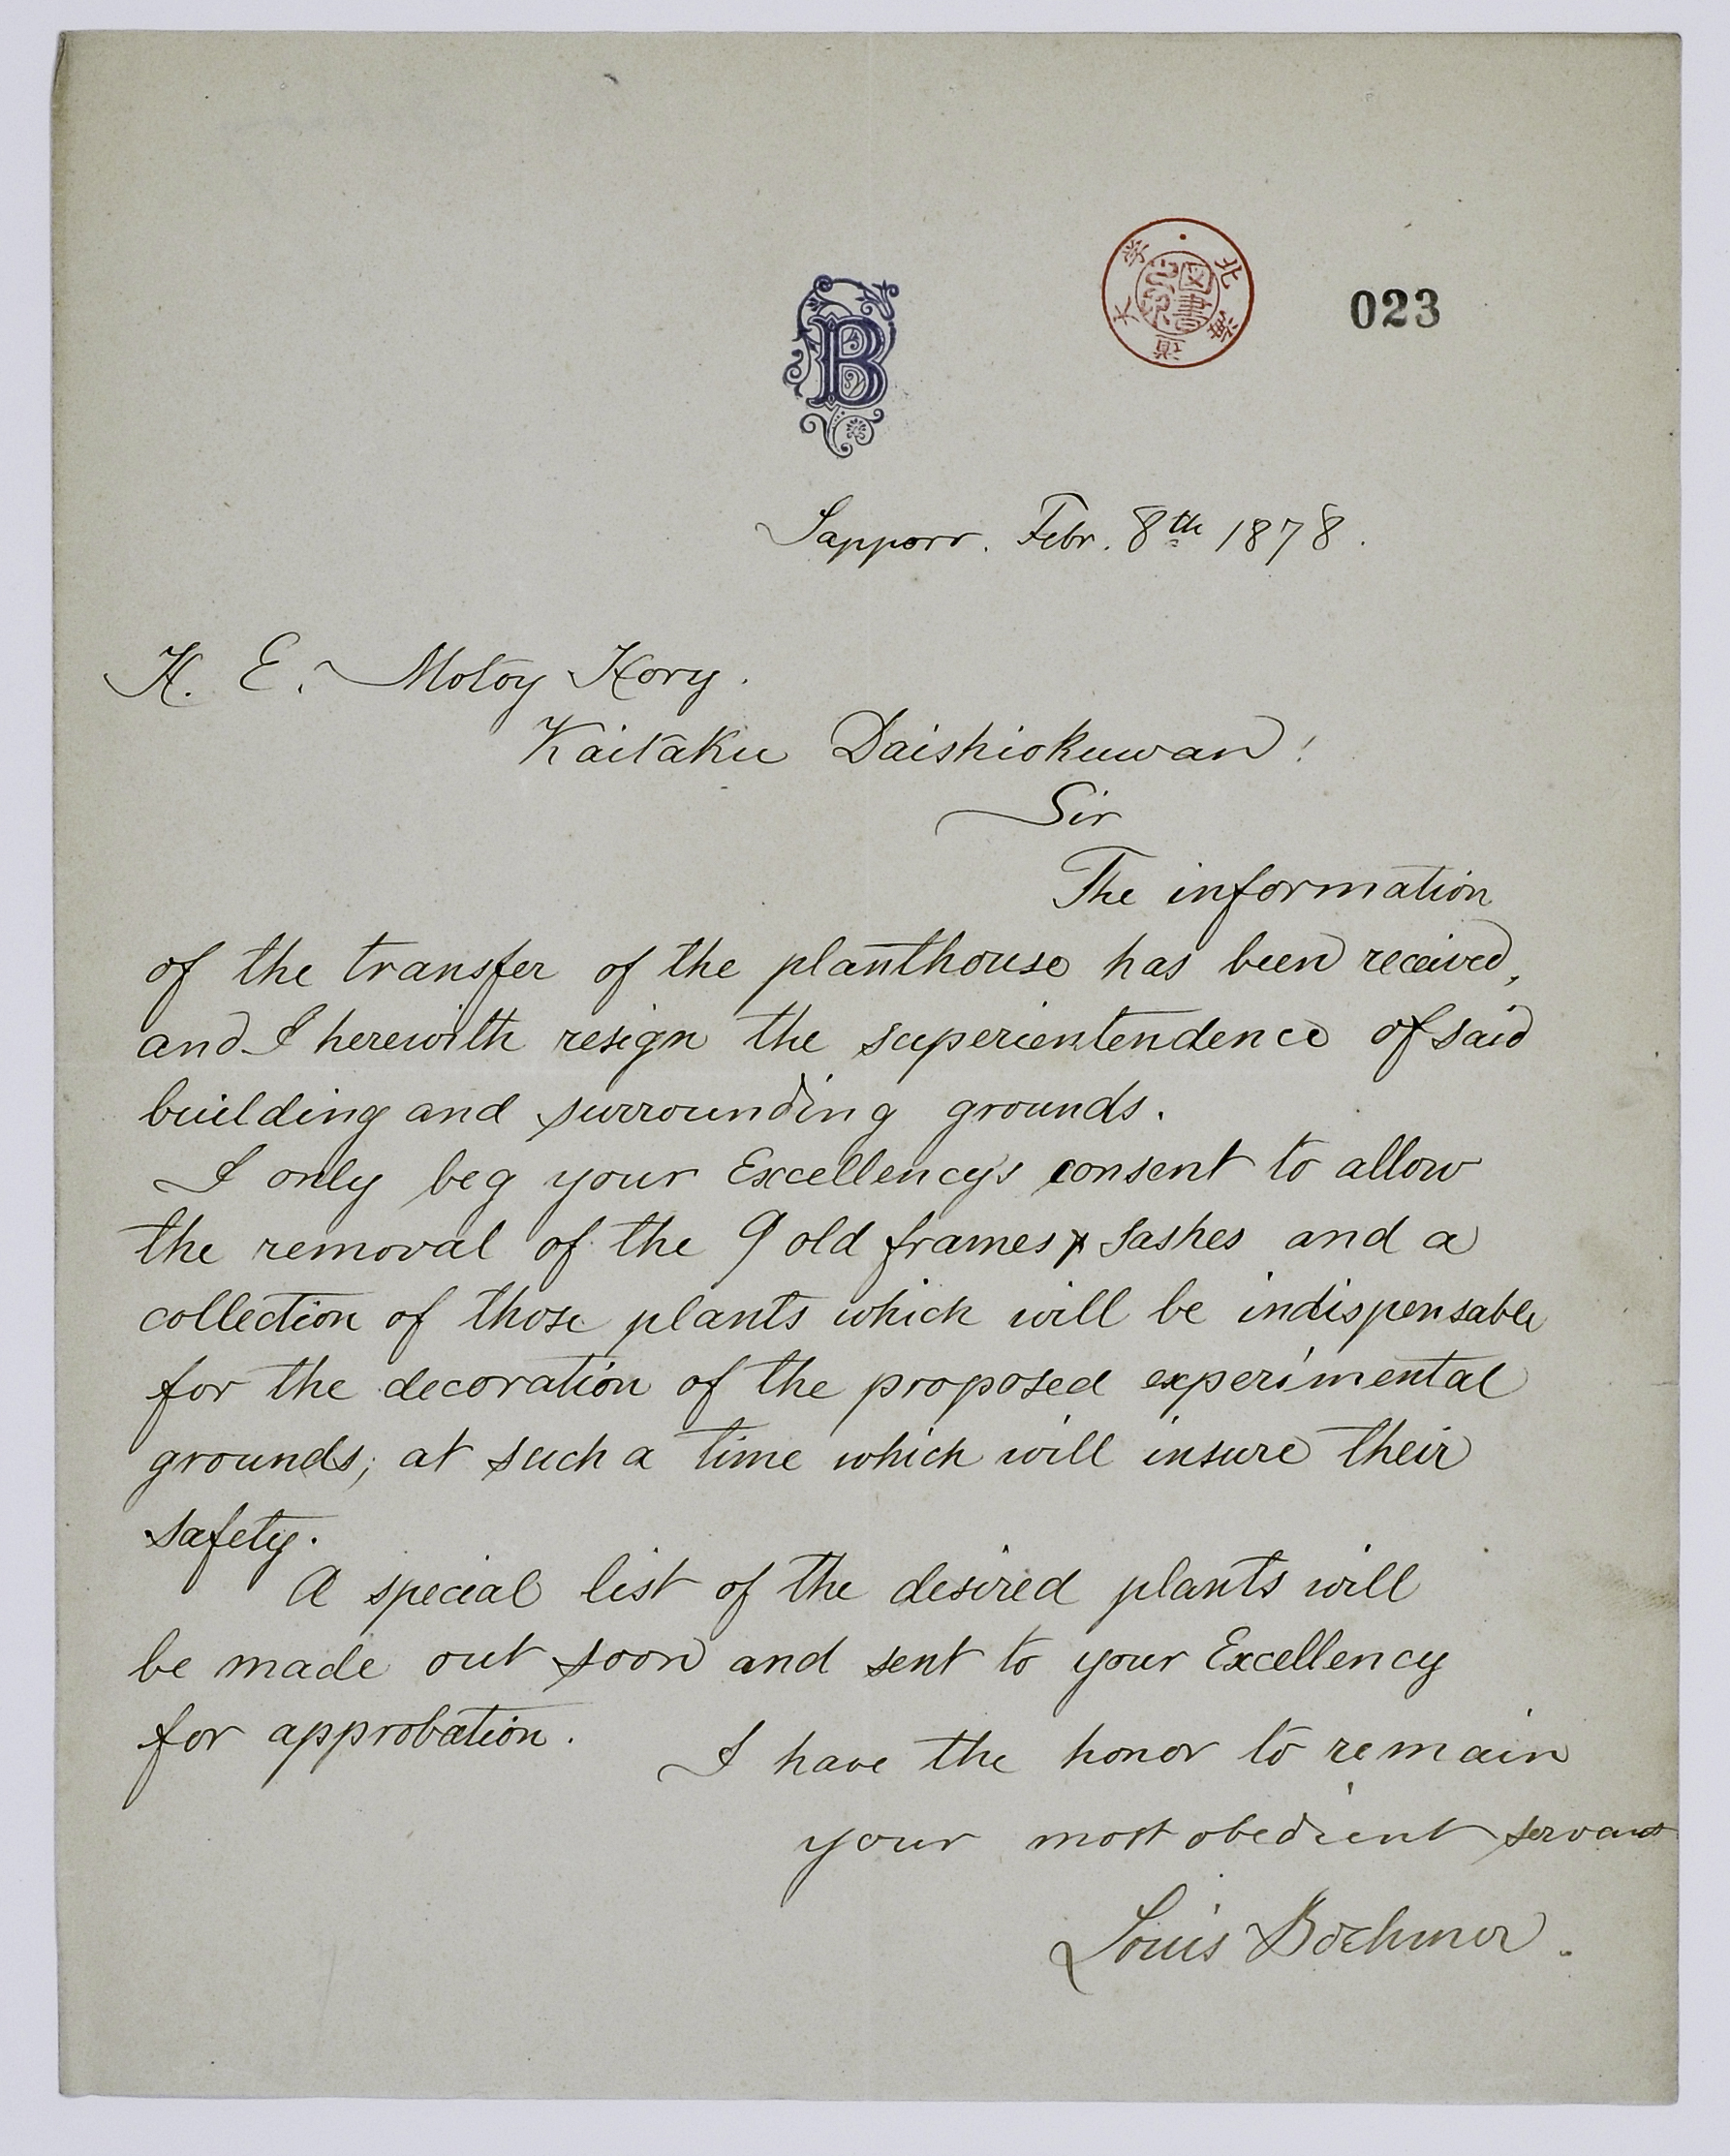 北海道大学
図書
023
B
Sapporo. Febr. 8th 1878.
H. E. Motoy Hory.
Kaitaku Daishiokuwan!
Sir
The information
of the transfer of the planthouse has been received,
and I herewith resign the superientendence of said
building and surrounding grounds.
I only beg your Excellency's consent to allow
the removal of the 9 old frames & sashes and a
collection of those plants which will be indispensable
for the decoration of the proposed experimental
grounds; at such a time which will insure their
safety.
A special list of the desired plants will
be made out soon and sent to your Excellency
for approbation.
I have the honor to remain
your most obedient servant
Louis Boehmer.